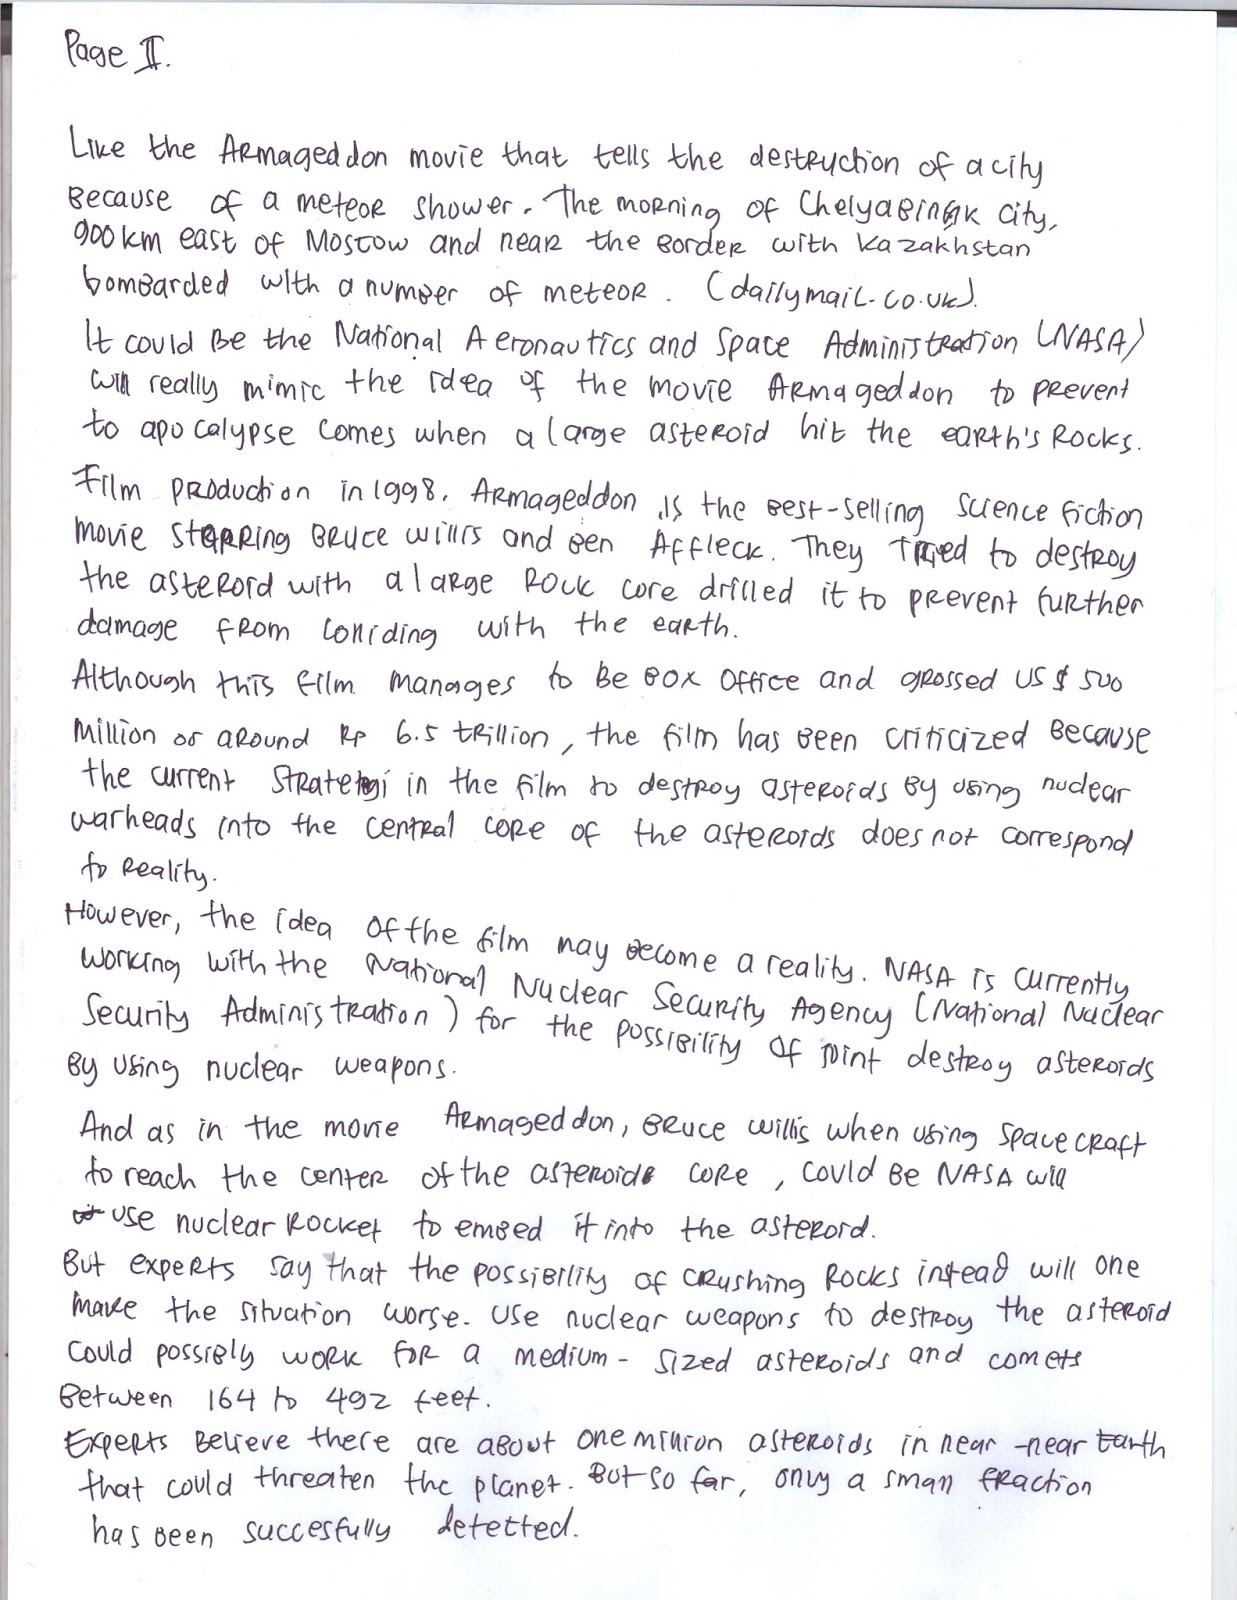 Page II.
Like the Armageddon movie that tells the destruction of a city
Because of a meteor shower. The morning of Chelyabinsk city,
900 km east of Moscow and near the Border with Kazakhstan
bombarded with a number of meteor. (dailymail.co.uk).
It could Be the National Aeronautics and Space Administration (NASA)
will really mimic the idea of the movie Armageddon to prevent
to apocalypse comes when a large asteroid hit the earth's Rocks.
Film production in 1998, Armageddon is the Best-selling science fiction
movie starring Bruce willis and Ben Affleck. They Tried to destroy
the asteroid with a large Rock core drilled it to prevent further
damage from colliding with the earth.
Although this film manages to be Box Office and grossed US $ 500
Million or around Rp 6.5 trillion, the film has been criticized Because
the current strategi in the film to destroy asteroids By using nuclear
warheads into the central core of the asteroids does not correspond
to reality.
However, the idea of the film may Become a reality. NASA is currently
working with the National Nuclear Security Agency (National Nuclear
Security Administration) for the possibility of joint destroy asteroids
By using nuclear weapons.
And as in the movie Armageddon, Bruce willis when using spacecraft
to reach the center of the asteroids core, could Be NASA will
use nuclear Rocket to embed it into the asteroid.
But experts say that the possibility of crushing Rocks instead will one
make the situation worse. Use nuclear weapons to destroy the asteroid
could possibly work for a medium-sized asteroids and comets
Between 164 to 492 feet.
Experts Believe there are about one million asteroids in near-near Earth
that could threaten the planet. But so far, only a small fraction
has been succesfully detected.